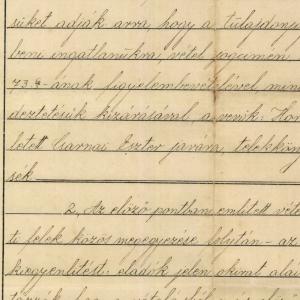 süket adják arra, hogy a tulajdony
beni ingatlanukra, vétel jogcimén
73.§-ának figyelembevételével min
deztetésük kizárásával a vevök: Hor
letett Csarnai Eszter javára, telekköny
sék
2., Az elözö pontban emlitett véte
ti felek közös megegyezése folytán - az
kiegyenlitést: eladók jelen okirat alái